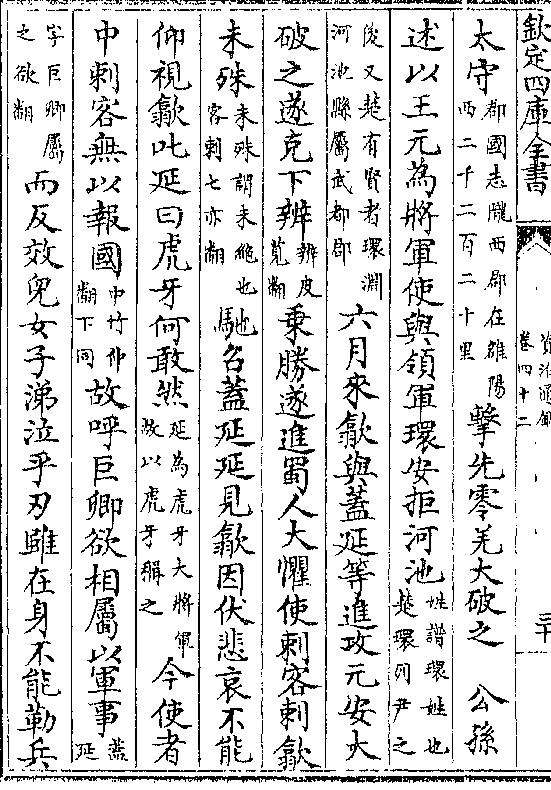 欽定四庫全書
資治通鑑
卷四十二
三十
太守郡國志隴西郡在雒陽西二千二百二十里擊先零羌大破之　公孫
述以王元為將軍使與領軍環安拒河池姓譜環姓也楚環列尹之
後又楚有賢者環淵河池縣屬武都郡六月來歙與蓋延等進攻元安大
破之遂克下辨辨皮莧翻乘勝遂進蜀人大懼使刺客刺歙
未殊未殊謂未絶也客刺七亦翻馳召蓋延延見歙因伏悲哀不能
仰視歙叱延曰虎牙何敢然延為虎牙大將軍故以虎牙稱之今使者
中刺客無以報國中竹仲翻下同故呼巨卿欲相屬以軍事蓋延
字巨卿屬之欲翻而反效兒女子涕泣乎刃雖在身不能勒兵